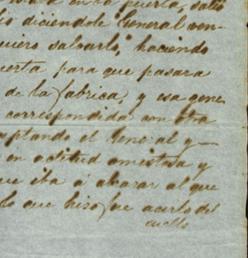 en la puerta, salio
lo diciendole General ven-
quiero salvarlo, haciendo
uerta para que pasara
de la fabrica, y esa gene
correspondida con otra
mptando el General y—
en actitud amistosa y
que iba á abrazar al que
lo que hiso fue acirlo del
cuello